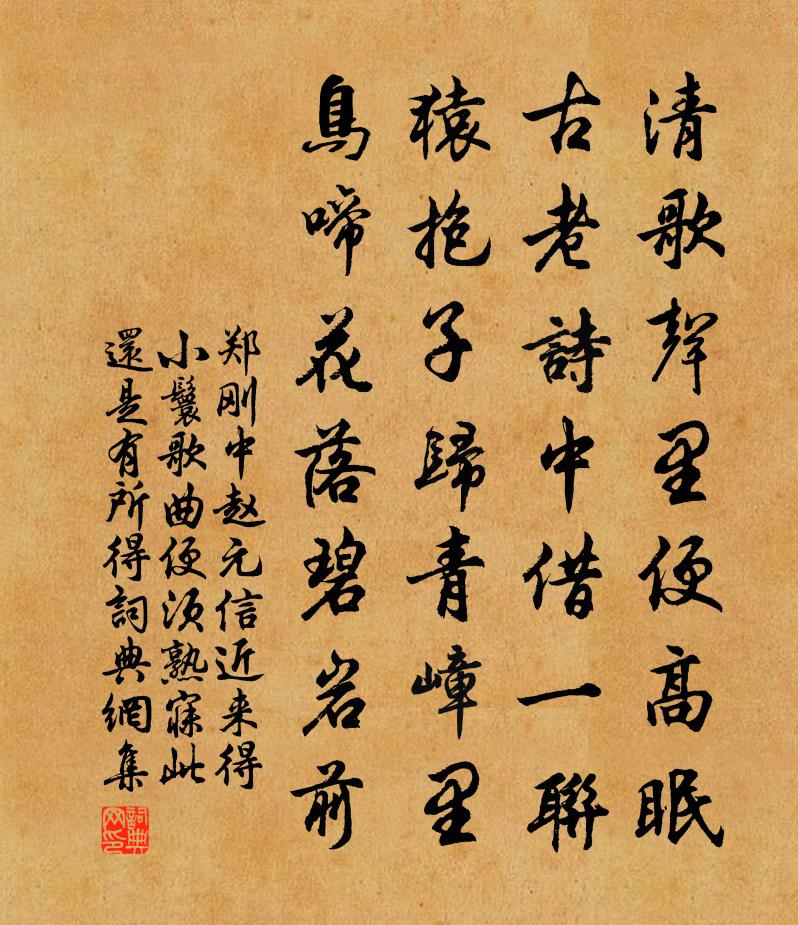 清歌聲里便高眠
古老詩中借一聯
猿抱子歸青嶂里
鳥啼花落碧岩前
郑刚中赵元信近来得
小鬟歌曲便须熟寐此
還是有所得詞典網集
詞典网印